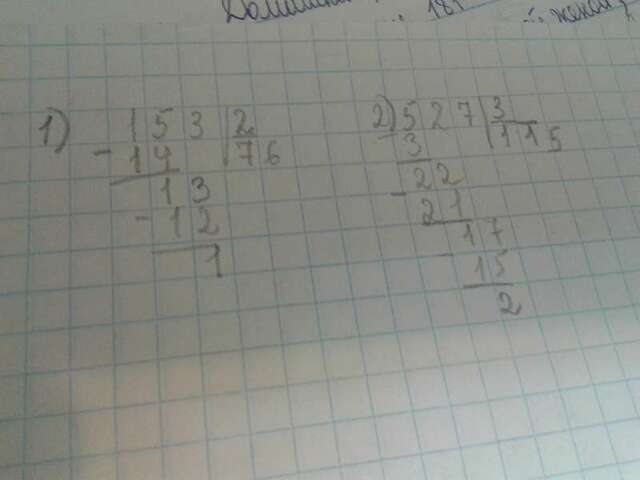 1) 153 2
- 14 76
13
- 12
1
2) 527 3
3 175
22
- 21
17
- 15
2